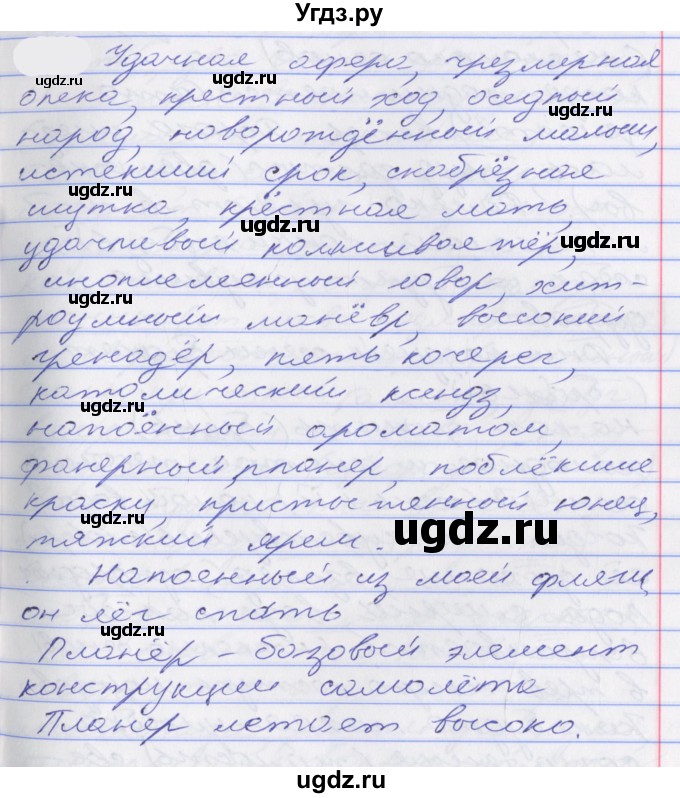 Угдз.ру
Удачная афера, чрезмерная
ugdz.ru ugdz.ru
опека, крестный ход, оседлый
народ, новорождённый малыш,
ugdz.ru
истекший срок, скабрёзная
ugdz.ru
шутка, крёстная мать,
ugdz.ru
удачливый кольшивоятёр,
ugdz.ru
иноплеменный говор, хит-
ugdz.ru
роумный манёвр, высокий
гренадёр, пять кочерег,
католический ксендз,
ugdz.ru
напоённый ароматом,
фанерный планер, поблёкшие
краски, пристыженный юнец,
ugdz.ru
ugdz.ru
тяжкий ярем.
Напоенный из моей фляги
он лёг спать
ugdz.ru
Планёр - базовый элемент
конструкции самолёта
Планер летает высоко.
ugdz.ru
ugdz.ru